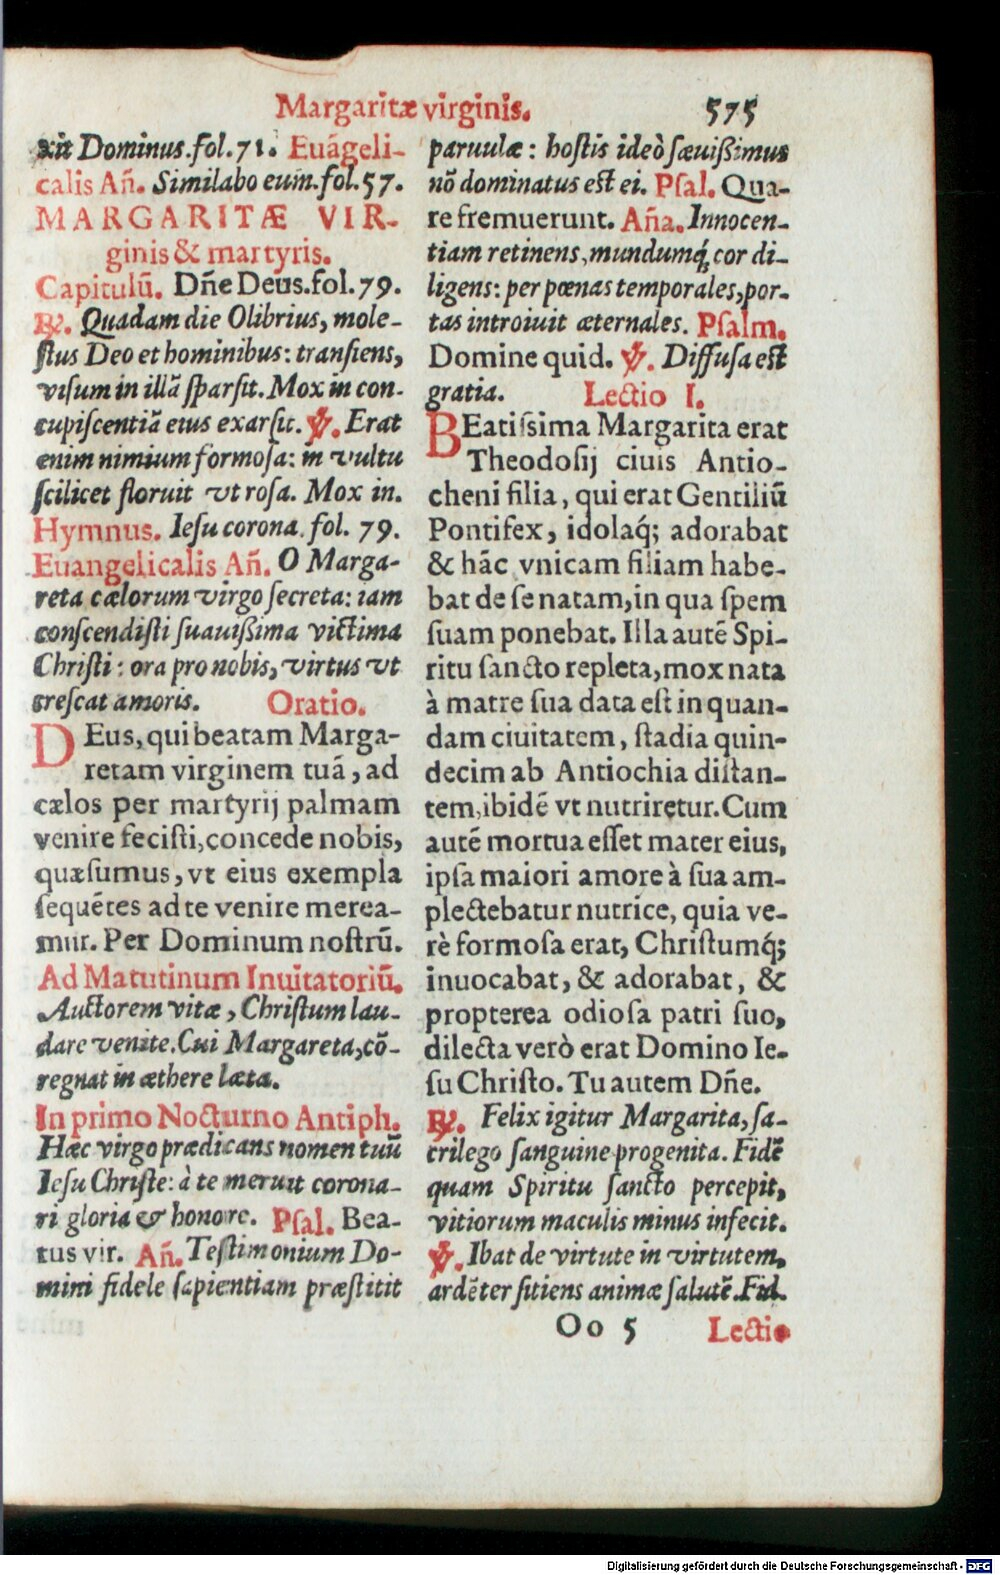 Margaritæ virginis. 575
xit Dominus.fol.71. Euãgeli-
calis Añ. Similabo eum.fol.57.
MARGARITÆ VIR-
ginis & martyris.
Capitulũ. Dñe Deus.fol.79.
℟. Quadam die Olibrius, mole-
ſtus Deo et hominibus: tranſiens,
viſum in illã ſparſit. Mox in con-
cupiſcentiã eius exarſit. ℣. Erat
enim nimium formoſa: in vultu
ſcilicet floruit vt roſa. Mox in.
Hymnus. Ieſu corona. fol. 79.
Euangelicalis Añ. O Marga-
reta cælorum virgo ſecreta: iam
conſcendiſti ſuauißima victima
Chriſti: ora pro nobis, virtus vt
creſcat amoris. Oratio.
DEus, qui beatam Marga-
retam virginem tuã, ad
cælos per martyrij palmam
venire feciſti, concede nobis,
quæſumus, vt eius exempla
ſequẽtes ad te venire merea-
mur. Per Dominum noſtrũ.
Ad Matutinum Inuitatoriũ.
Auctorem vitæ, Chriſtum lau-
dare venite. Cui Margareta, cõ-
regnat in æthere læta.
In primo Nocturno Antiph.
Hæc virgo prædicans nomen tuũ
Ieſu Chriſte: à te meruit corona-
ri gloria & honore. Pſal. Bea-
tus vir. Añ. Teſtimonium Do-
mini fidele ſapientiam præſtitit
paruulæ: hoſtis ideò ſæuißimus
nõ dominatus eſt ei. Pſal. Qua-
re fremuerunt. Aña. Innocen-
tiam retinens, mundumq́; cor di-
ligens: per pœnas temporales, por-
tas introiuit æternales. Pſalm.
Domine quid. ℣. Diffuſa eſt
gratia. Lectio I.
BEatiſsima Margarita erat
Theodoſij ciuis Antio-
cheni filia, qui erat Gentiliũ
Pontifex, idolaq́; adorabat
& hãc vnicam filiam habe-
bat de ſe natam, in qua ſpem
ſuam ponebat. Illa autẽ Spi-
ritu ſancto repleta, mox nata
à matre ſua data eſt in quan-
dam ciuitatem, ſtadia quin-
decim ab Antiochia diſtan-
tem, ibidẽ vt nutriretur. Cum
autẽ mortua eſſet mater eius,
ipſa maiori amore à ſua am-
plectebatur nutrice, quia ve-
rè formoſa erat, Chriſtumq́;
inuocabat, & adorabat, &
propterea odioſa patri ſuo,
dilecta verò erat Domino Ie-
ſu Chriſto. Tu autem Dñe.
℟. Felix igitur Margarita, ſa-
crilego ſanguine progenita. Fidẽ
quam Spiritu ſancto percepit,
vitiorum maculis minus infecit.
℣. Ibat de virtute in virtutem,
ardẽter ſitiens animæ ſalutẽ. Fid.
Oo 5 Lectio
Digitalisierung gefördert durch die Deutsche Forschungsgemeinschaft - DFG